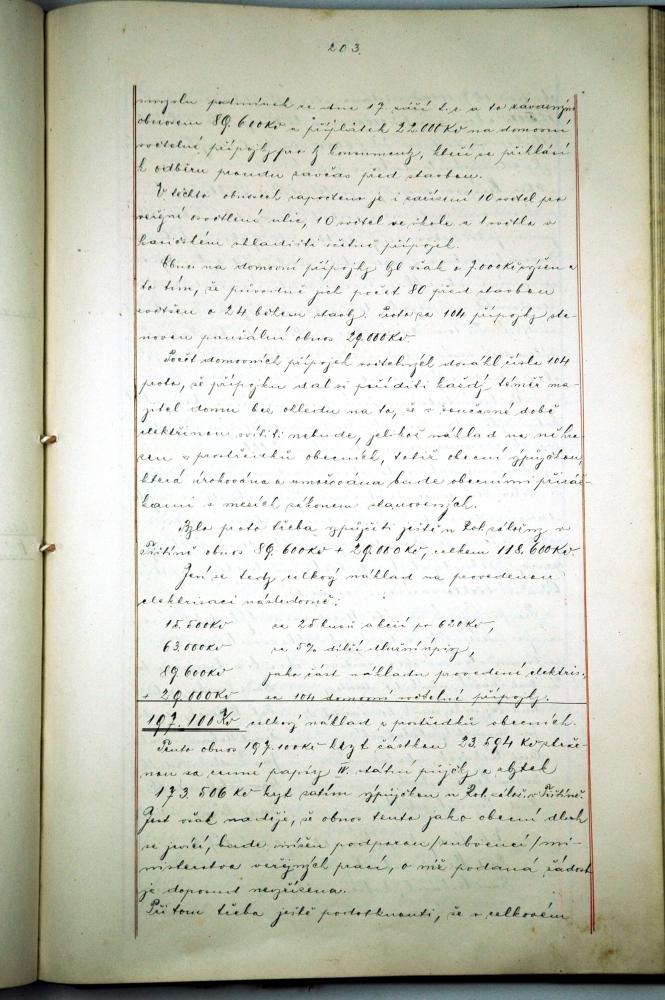 203.
smyslu podmínek ze dne 17. září t.r. a to závazným
obnosem 89.600 Kč a příplatek 22.000 Kč na domovní
světelné přípojky pro ty konsumenty, kteří se přihlásí
k odběru proudu zavčas před stavbou.
V těchto obnosech započteno je i zařízení 10 světel pro
veřejní osvětlení ulic, 10 světel ve škole a 1 světla v
hasičském skladišti včetně přípojek.
Obnos na domovní přípojky byl však o 7.000 Kč zvýšen a
to tím, že původně jich počet 80 před stavbou
zvětšen o 24 během stavby. Proto za 104 přípojky sta-
noven paušální obnos 29.000 Kč
Počet domovních přípojek světelných dosáhl čísla 104
proto, že přípojku dal si zříditi každý téměř ma-
jitel domu bez ohledu na to, že v současné době
elektřinou svítiti nebude, jelikož náklad na ně hra-
zen z prostředků obecních, totiž obecní výpůjčkou,
která úrokována a umořována bude obecními přiráž-
kami v mezích zákonem stanovených.
Bylo proto třeba vypůjčiti ještě u Rol. záložny v
obnos 89.600 Kč + 29.000 Kč, celkem 118.600 Kč
Jeví se tedy celkový náklad na provedenou
elektrisaci následovně:
15.500 Kč za 25 kusů akcií po 620 Kč,
63.000 Kč za 5% dílčí dlužní úpisy,
89.600 Kč jako část nákladu provedení elektris.
+ 29.000 Kč za 104 domovní světelné přípojky.
197.100 Kč celkový náklad z prostředků obecních.
Tento obnos 197.100 Kč kryt částkou 23.594 Kč strže-
nou za cenné papíry IV. státní půjčky a zbytek
173.506 Kč kryt zatím výpůjčkou u Rol. zálož. v
Jest však naděje, že obnos tento jako obecní dluh
se jevící, bude snížen podporou /subvencí/ mi-
nisterstva veřejných prací, o níž podaná žádost
je doposud nevyřízena.
Při tom třeba ještě podotknouti, že v celkovém